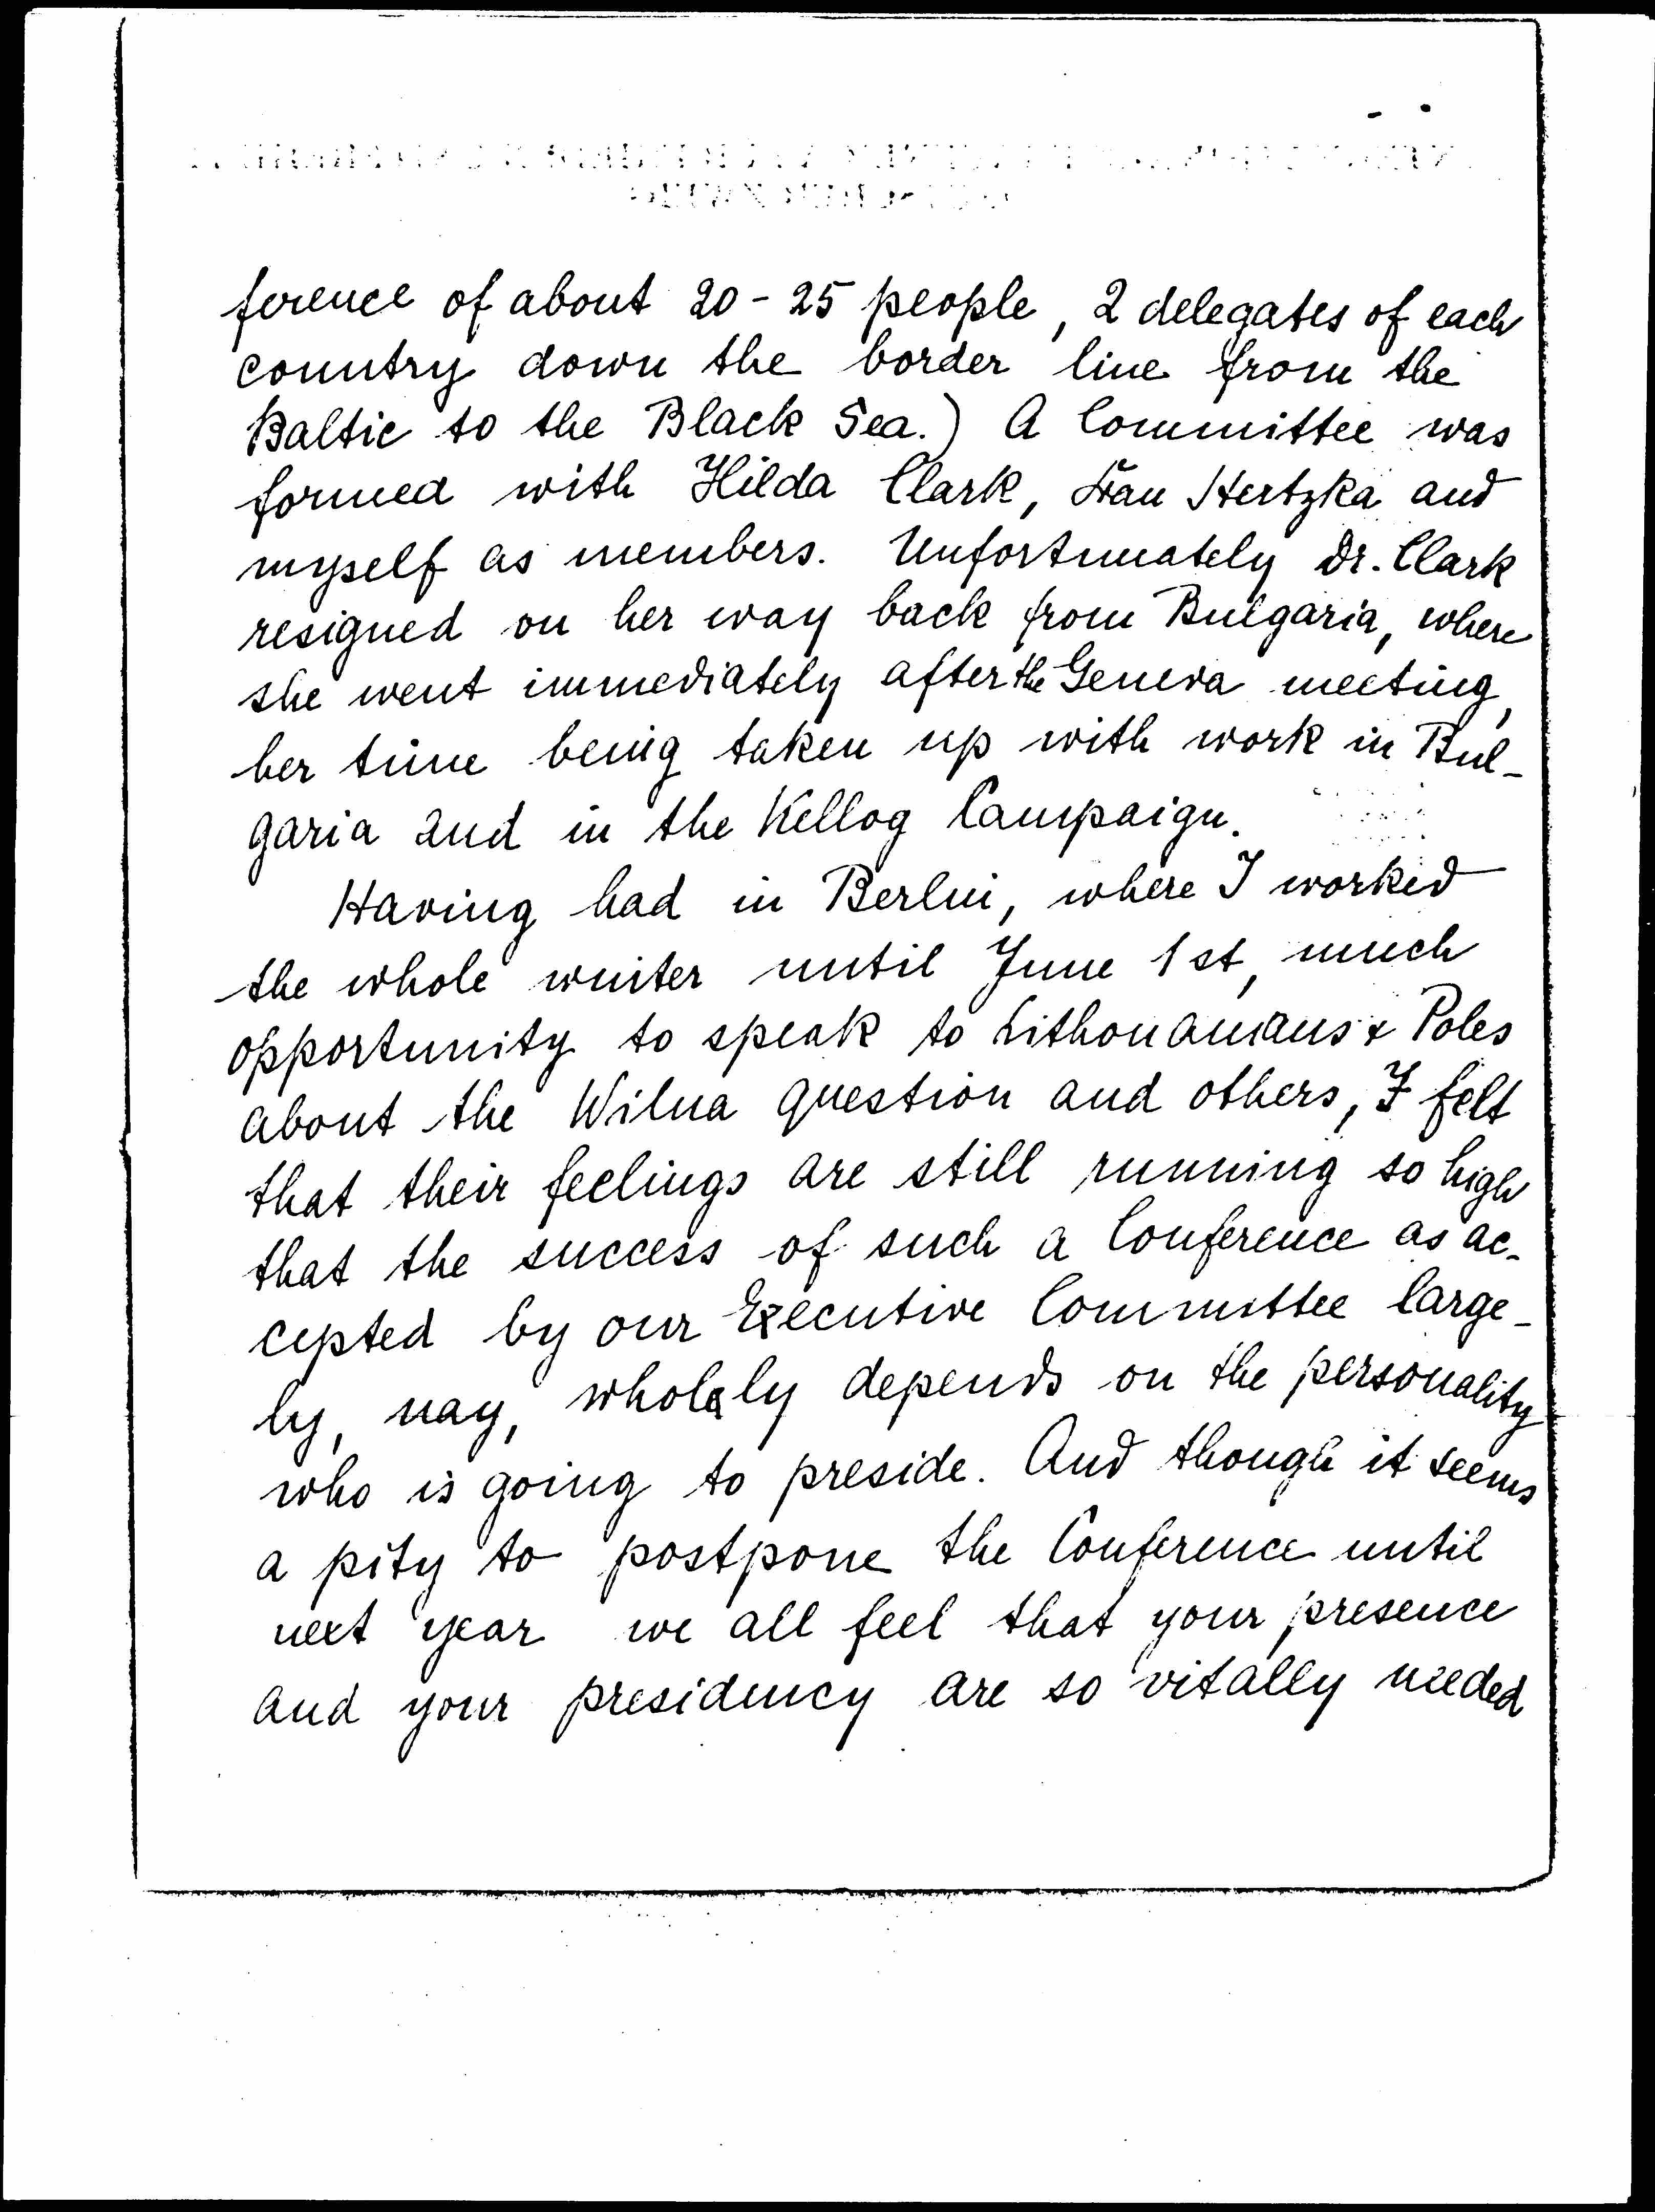 ference of about 20-25 people, 2 delegates of each
country down the border line from the
Baltic to the Black Sea.) A Committee was
formed with Hilda Clark, Frau Hertzka and
myself as members. Unfortunately Dr. Clark
resigned on her way back from Bulgaria, where
she went immediately after the Geneva meeting,
her time being taken up with work in Bul-
garia and in the Kellog Campaign.
Having had in Berlin, where I worked
the whole winter until June 1st, much
opportunity to speak to Lithouanians & Poles
about the Wilna question and others, I felt
that their feelings are still running so high
that the success of such a Conference as ac-
cepted by our Executive Committee large-
ly, nay, wholely depends on the personality
who is going to preside. And though it seems
a pity to postpone the Conference until
next year we all feel that your presence
and your presidency are so vitally needed